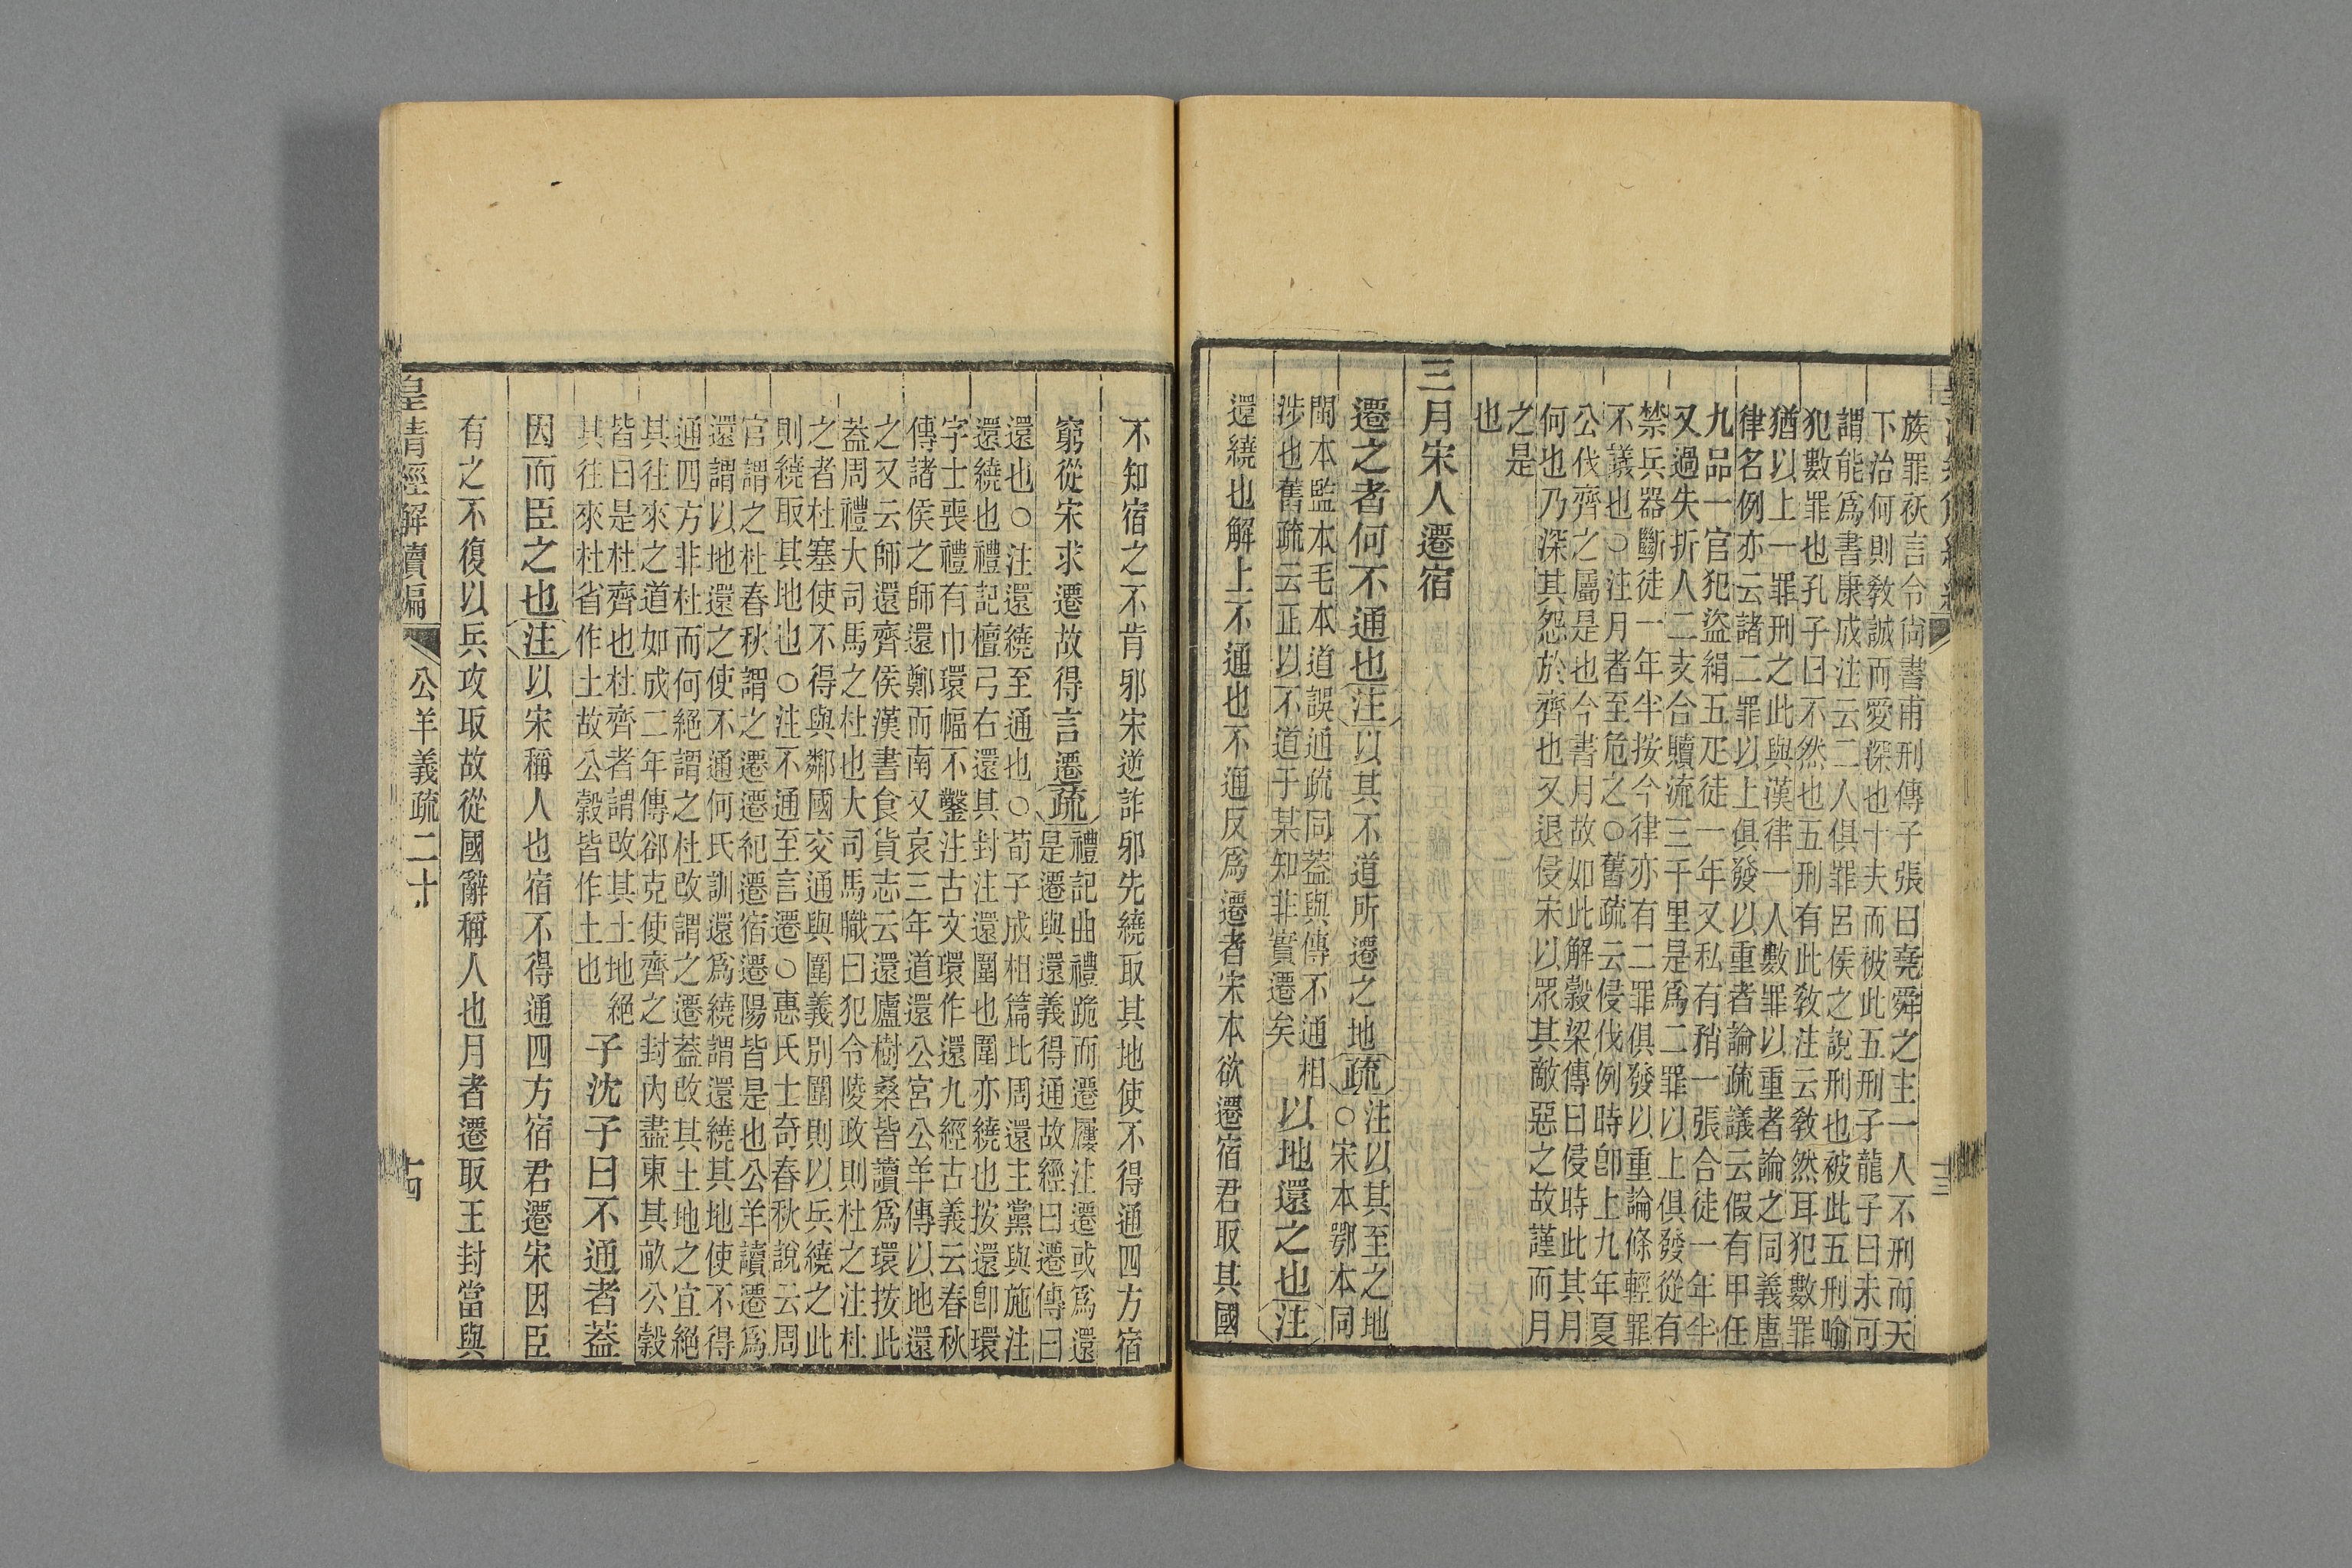 族罪祅言令尚書甫刑傳子張曰堯舜之主一人不刑而天
下治何則敎誠而愛深也十夫而被此五刑子龍子曰未可
謂能爲書康成注云二人俱罪呂侯之說刑也被此五刑喻
犯數罪也孔子曰不然也五刑有此敎注云敎然耳犯數罪
猶以上一罪刑之此與漢律一人數罪以重者論之同義唐
律名例亦云諸二罪以上俱發以重者論疏議云假有甲任
九品一官犯盜絹五疋徒一年又私有矟一張合徒一年半
又過失折人二支合贖流三千里是爲二罪以上俱發從有
禁兵器斷徒一年半按今律亦有二罪俱發以重論條輕罪
不議也○注月者至危之○舊疏云侵伐例時卽上九年夏
公伐齊之屬是也今書月故如此解穀梁傳曰侵時此其月
何也乃深其怨於齊也又退侵宋以眾其敵惡之故謹而月
之是
也
三月宋人遷宿
遷之者何不通也注以其不道所遷之地疏注以其至之地
○宋本鄂本同
閩本監本毛本道誤通疏同蓋與傳不通相
涉也舊疏云正以不道于某知非實遷矣
以地還之也注
還繞也解上不通也不通反爲遷者宋本欲遷宿君取其國
不知宿之不肯邪宋逆詐邪先繞取其地使不得通四方宿
窮從宋求遷故得言遷疏禮記曲禮跪而遷屨注遷或爲還
是遷與還義得通故經曰遷傳曰
還也○注還繞至通也○荀子成相篇比周還主黨與施注
還繞也禮記檀弓右還其封注還圍也圍亦繞也按還卽環
字士喪禮有巾環幅不鑿注古文環作還九經古義云春秋
傳諸侯之師還鄭而南又哀三年道還公宮公羊傳以地還
之又云師還齊侯漢書食貨志云還廬樹桑皆讀爲環按此
蓋周禮大司馬之杜也大司馬職曰犯令陵政則杜之注杜
之者杜塞使不得與鄰國交通與圍義別圍則以兵繞之此
則繞取其地也○注不通至言遷○惠氏士奇春秋說云周
官謂之杜春秋謂之遷遷紀遷宿遷陽皆是也公羊讀遷爲
還謂以地還之使不通何氏訓還爲繞謂還繞其地使不得
通四方非杜而何絕謂之杜改謂之遷蓋改其土地之宜絕
其往來之道如成二年傳郤克使齊之封內盡東其畝公穀
皆曰是杜齊也杜齊者謂改其土地絕
其往來杜省作土故公穀皆作土也
子沈子曰不通者蓋
因而臣之也注以宋稱人也宿不得通四方宿君遷宋因臣
有之不復以兵攻取故從國辭稱人也月者遷取王封當與
皇清經解續編
公羊義疏二十
十四